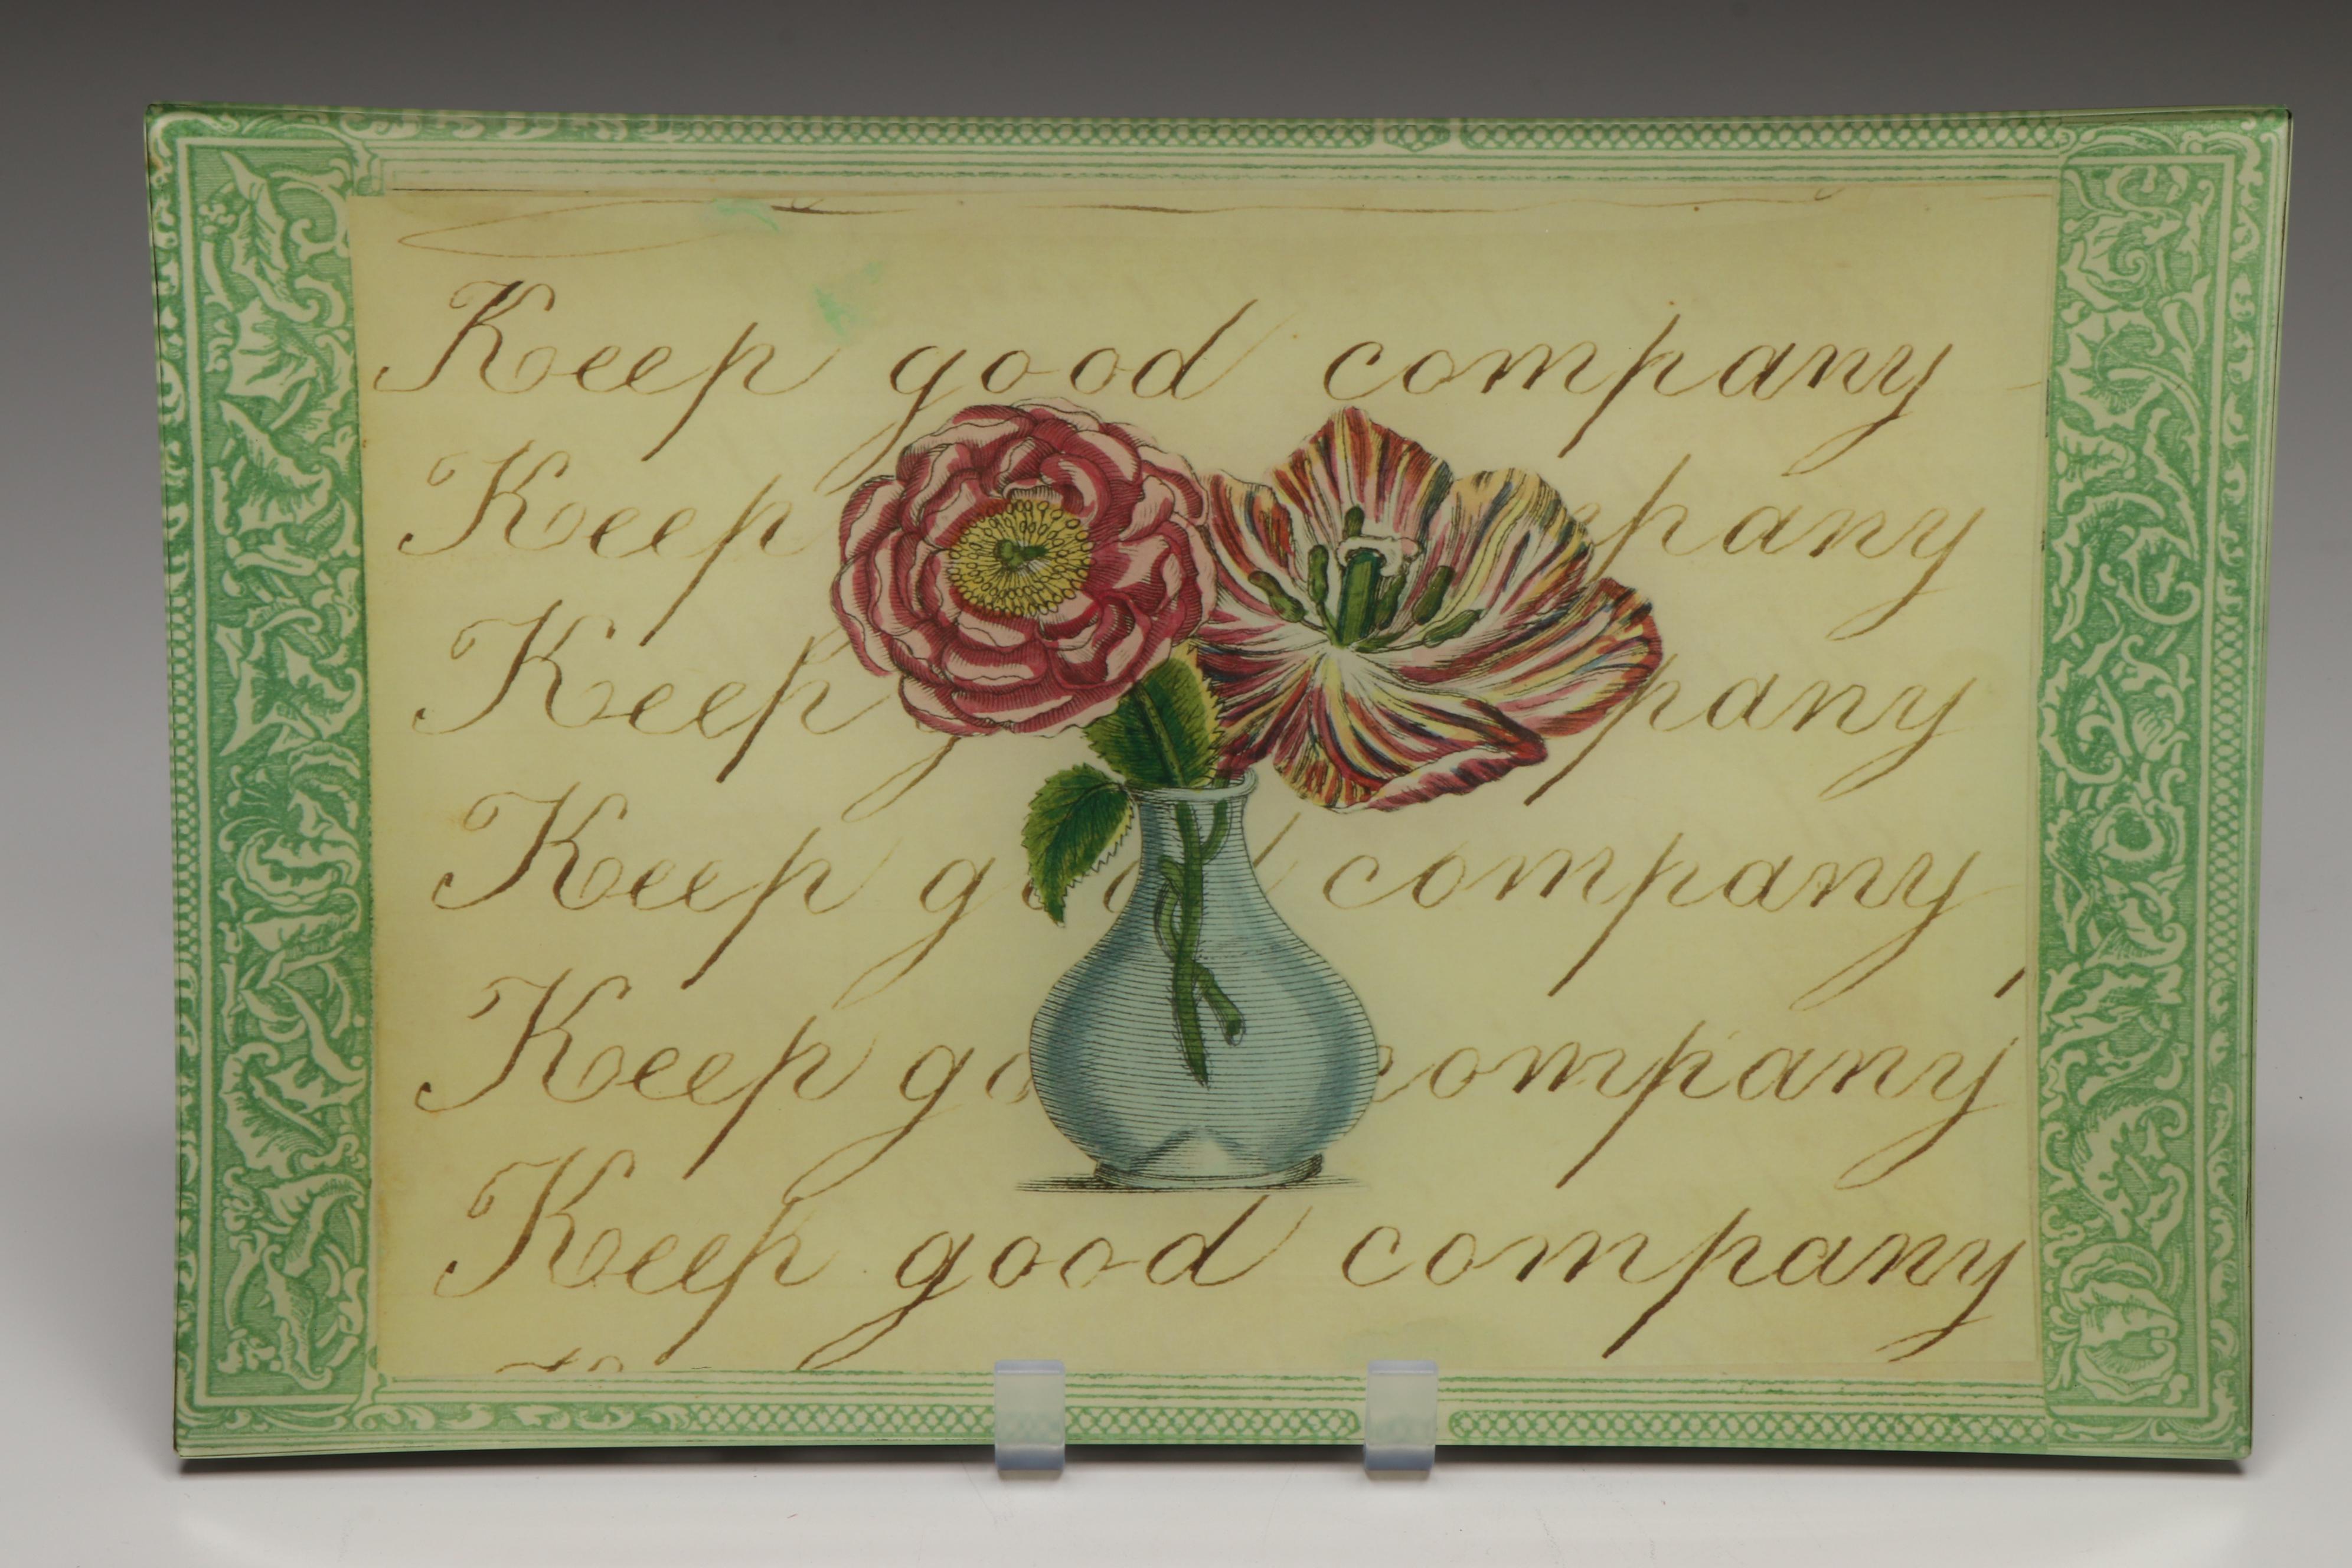 Keep good company
Keep pany
Keep pany
Keep company
Keep company
Keep good company